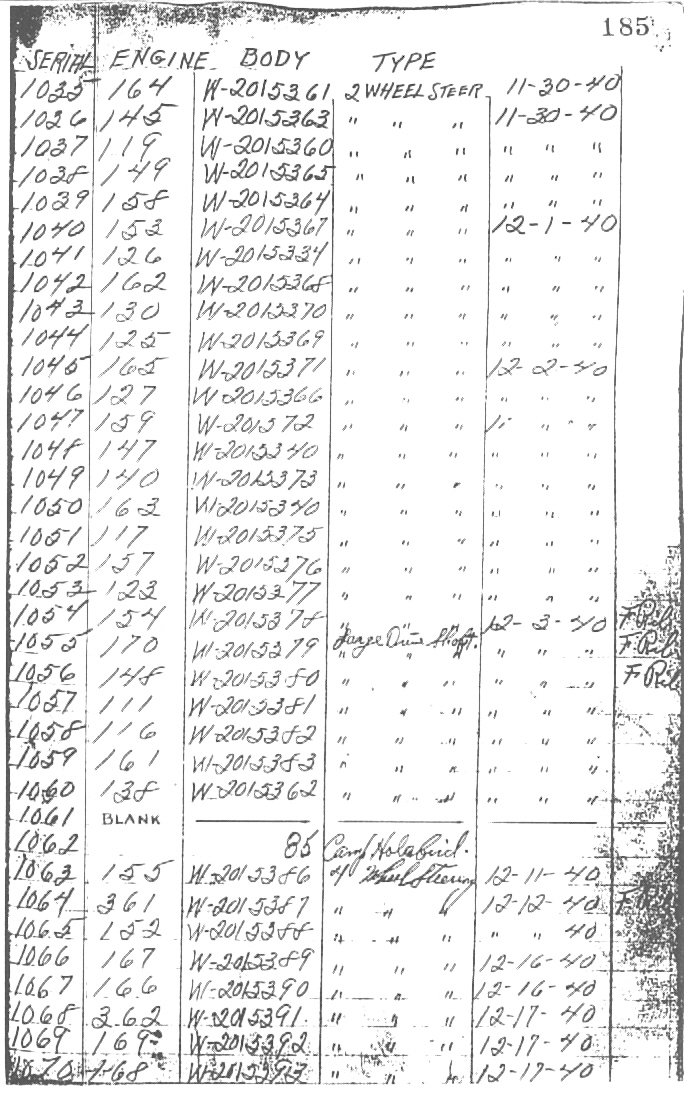 185
SERIAL ENGINE BODY TYPE
1035 164 W-2015361 2 WHEEL STEER 11-30-40
1036 145 W-2015363 " " " 11-30-40
1037 119 W-2015360 " " " " " "
1038 149 W-2015365 " " " " " "
1039 158 W-2015364 " " " " " "
1040 153 W-2015367 " " " 12-1-40
1041 126 W-2015334 " " " " " "
1042 162 W-2015368 " " " " " "
1043 130 W-2015370 " " " " " "
1044 125 W-2015369 " " " " " "
1045 165 W-2015371 " " " 12-2-40
1046 127 W-2015366 " " " " " "
1047 159 W-201572 " " " " " "
1048 147 W-2015340 " " " " " "
1049 140 W-2015373 " " " " " "
1050 163 W-2015340 " " " " " "
1051 117 W-2015375 " " " " " "
1052 157 W-2015376 " " " " " "
1053 123 W-2015377 " " " " " "
1054 154 W-2015378 " " " 12-3-40
1055 170 W-2015379 Large Drive Shaft. " " "
1056 148 W-2015380 " " " " " "
1057 111 W-2015381 " " " " " "
1058 116 W-2015382 " " " " " "
1059 161 W-2015383 " " " " " "
1060 138 W-2015362 " " " " " "
1061 BLANK
1062 85 Camp Holabird.
1063 155 W-2015386 4 Wheel Steering 12-11-40
1064 361 W-2015387 " " " 12-12-40
1065 152 W-2015388 " " " " " 40
1066 167 W-2015389 " " " 12-16-40
1067 166 W-2015390 " " " 12-16-40
1068 362 W-2015391 " " " 12-17-40
1069 169 W-2015392 " " " 12-17-40
1070 168 W-2015393 " " " 12-17-40